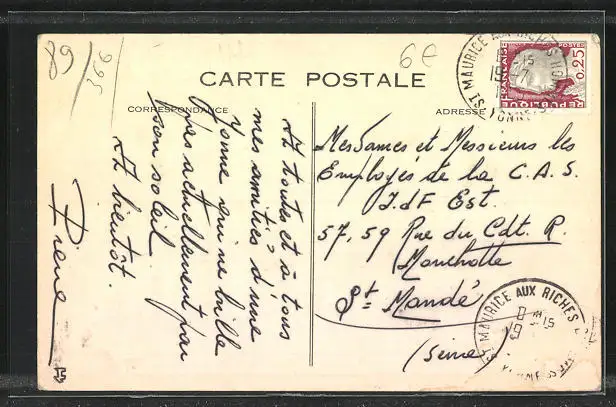 89/366
6€
CARTE POSTALE
CORRESPONDANCE
ADRESSE
A toutes et à tous
mes amitiés d'une
Yonne qui ne brille
pas actuellement par
son soleil
A bientôt.
Pierre
RÉPUBLIQUE
FRANÇAISE
POSTES
0,25
ST MAURICE AUX RICHES HO
YONNE
Mesdames et Messieurs les
Employés de la C.A.S.
I.d.F Est.
57.59 Rue du Cdt. R.
Mouchotte
St Mandé
(Seine)
ST MAURICE AUX RICHES